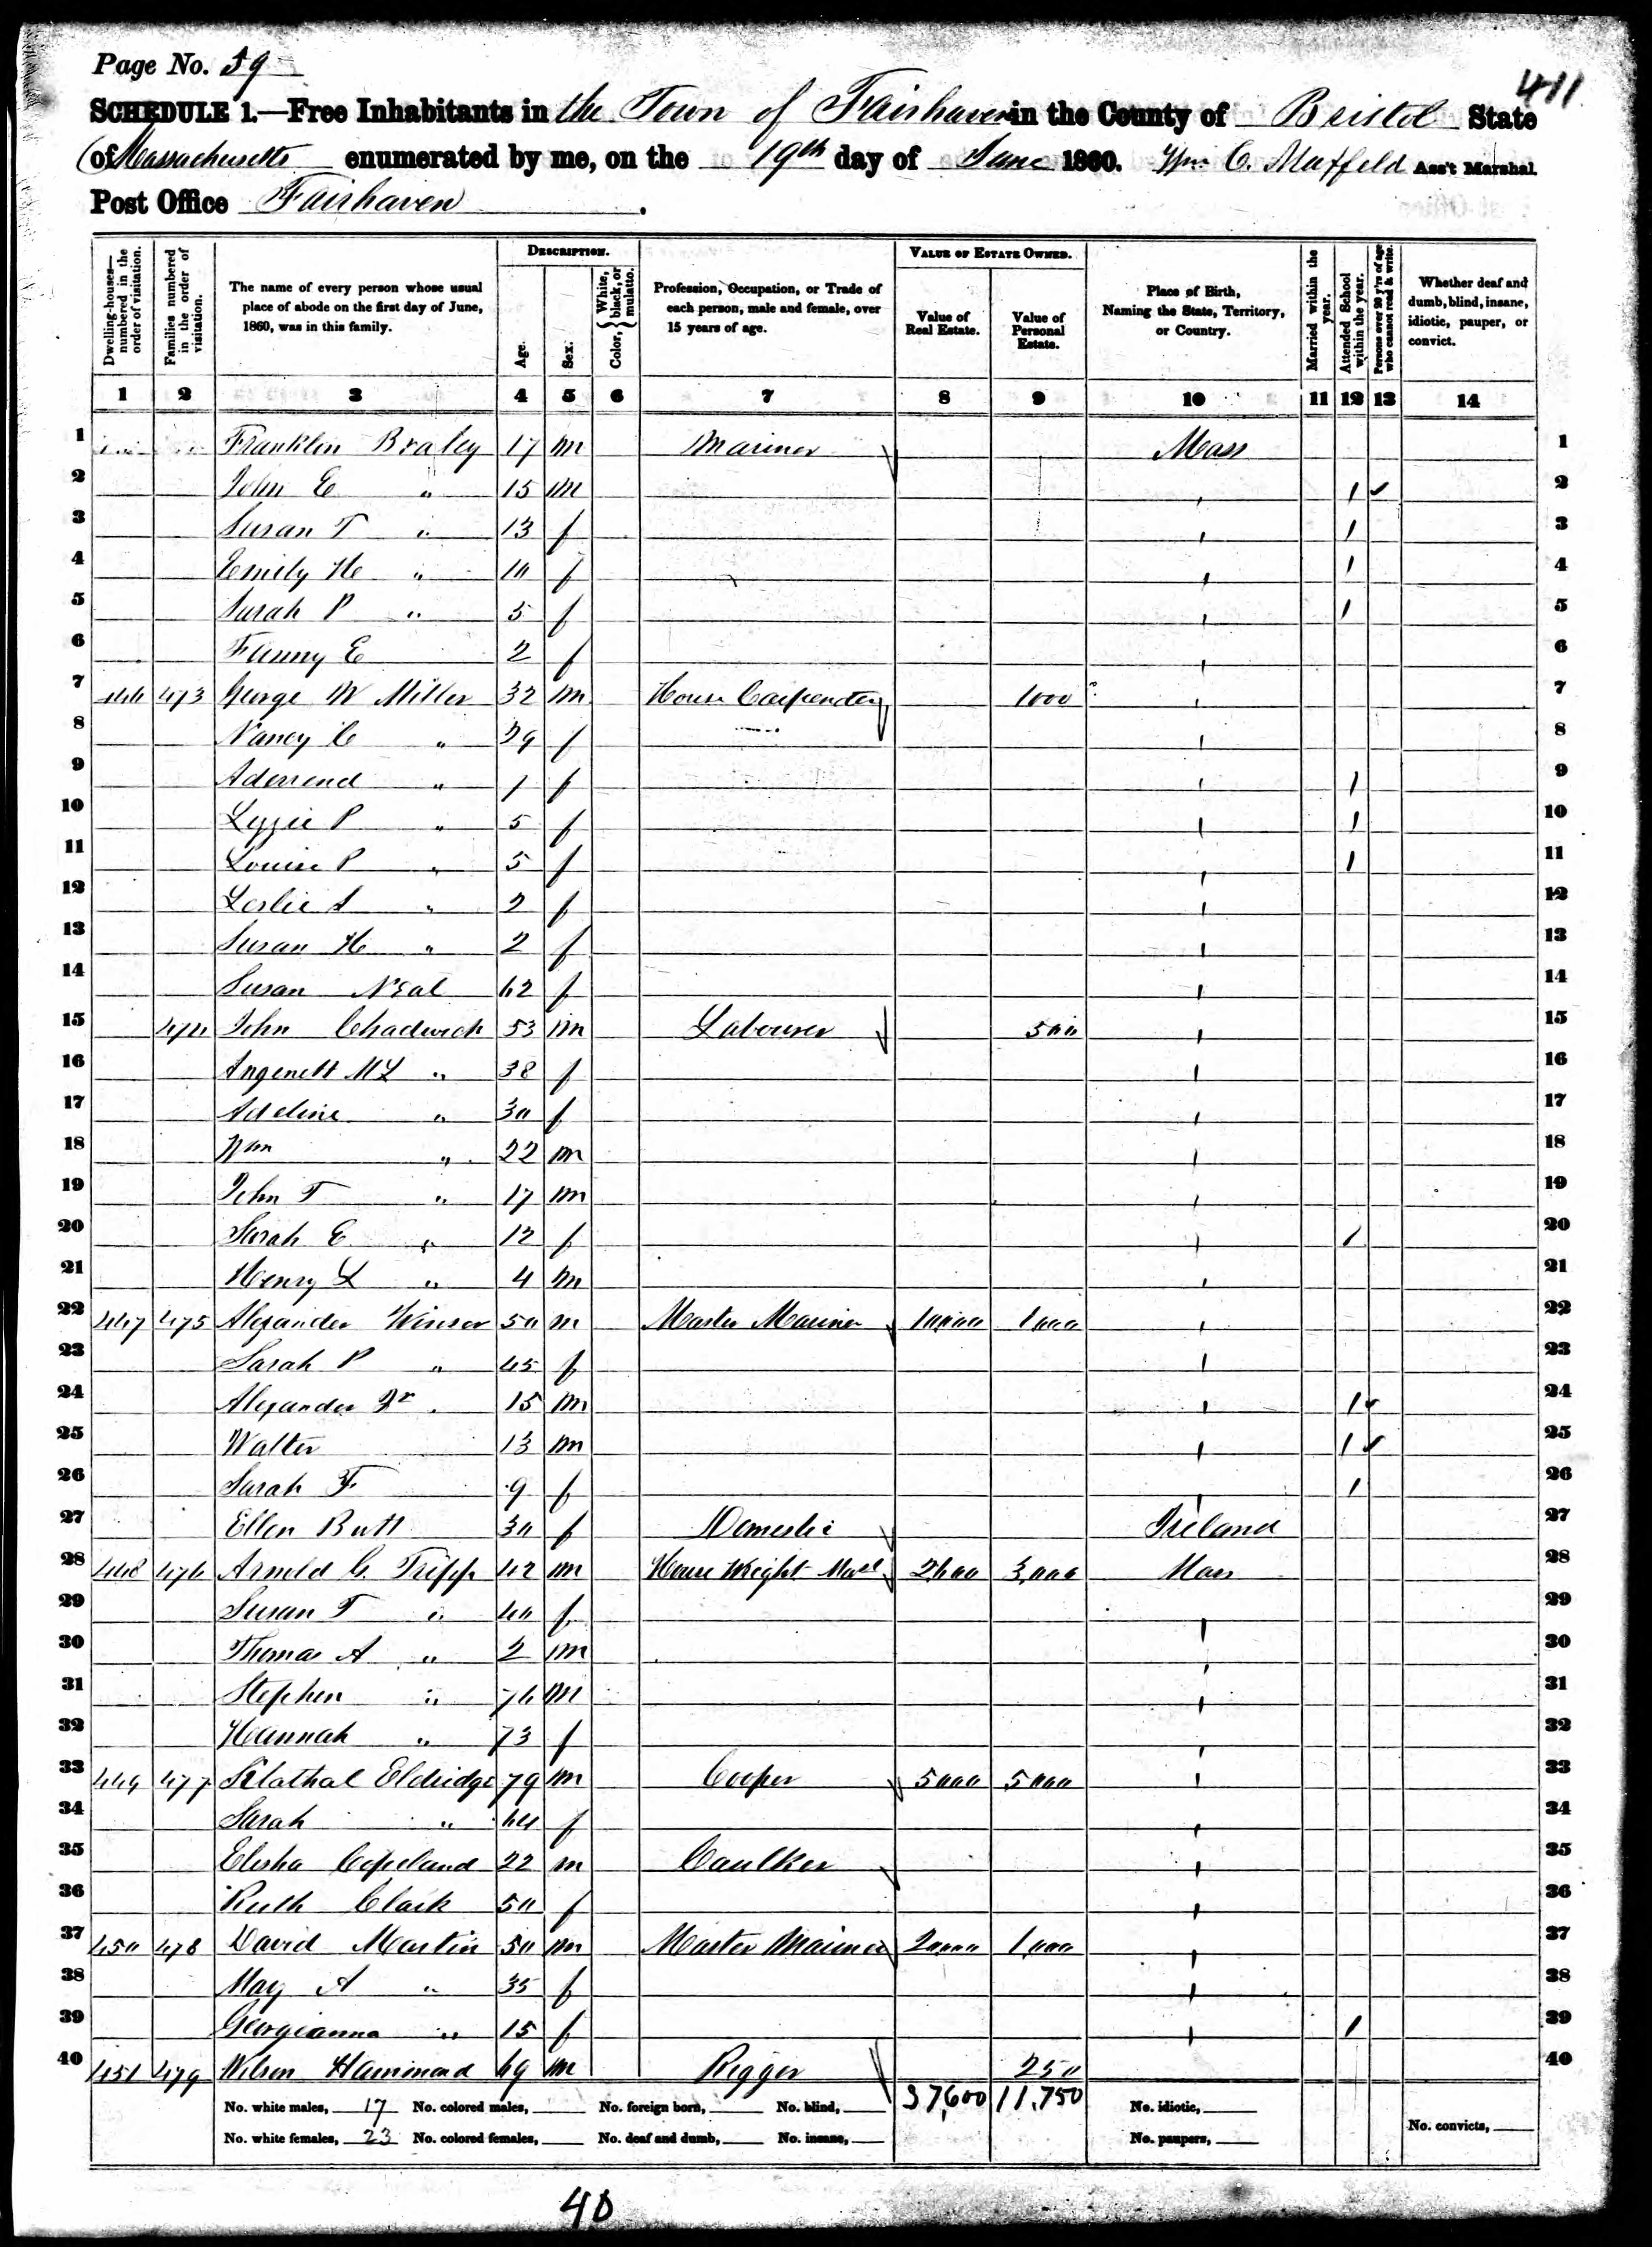 Page No. 59
411
SCHEDULE 1.—Free Inhabitants in the Town of Fairhaven in the County of Bristol State
of Massachusetts enumerated by me, on the 19th day of June 1860. Wm C. Ass't Marshal.
Post Office Fairhaven.
Dwelling-houses—numbered in the order of visitation. Families numbered in the order of visitation. The name of every person whose usual place of abode on the first day of June, 1860, was in this family. Description. Age. Sex. Color, White, black, or mulatto. Profession, Occupation, or Trade of each person, male and female, over 15 years of age. Value of Estate Owned. Value of Real Estate. Value of Personal Estate. Place of Birth, Naming the State, Territory, or Country. Married within the year. Attended School within the year. Persons over 20 y'rs of age who cannot read & write. Whether deaf and dumb, blind, insane, idiotic, pauper, or convict.
1 2 3 4 5 6 7 8 9 10 11 12 13 14
1 Franklin Braley 17 m Mariner Mass 1
2 John E " 15 m " 1 ✓ 2
3 Susan T " 13 f " 1 3
4 Emily H " 10 f " 1 4
5 Sarah P " 5 f " 1 5
6 Fanny E 2 f " 6
7 446 473 George W Miller 32 m House Carpenter 1000 " 7
8 Nancy C " 29 f " 8
9 " 1 f " 1 9
10 Lizzie P " 5 f " 1 10
11 Louise P " 5 f " 1 11
12 Leslie S " 2 f " 12
13 Susan H " 2 f " 13
14 Susan Neal 62 f " 14
15 474 John Chadwick 53 m Labourer 500 " 15
16 Angenett M L " 38 f " 16
17 Adeline " 30 f " 17
18 Wm " 22 m " 18
19 John T " 17 m " 19
20 Sarah E " 12 f " 1 20
21 Henry L " 4 m " 21
22 447 475 Alexander Winsor 50 m Master Mariner 10,000 1,000 " 22
23 Sarah P " 45 f " 23
24 Alexander Jr 15 m " 1 ✓ 24
25 Walter 13 m " 1 ✓ 25
26 Sarah F 9 f " 1 26
27 Ellen Butt 30 f Domestic Ireland 27
28 448 476 Arnold C. Tripp 42 m House Wright 2600 3,000 Mass 28
29 Susan T " 40 f " 29
30 Thomas A " 2 m " 30
31 Stephen " 76 m " 31
32 Hannah " 73 f " 32
33 449 477 Eldridge 79 m Cooper 5000 5000 " 33
34 Sarah " 64 f " 34
35 Elisha Copeland 22 m Caulker " 35
36 Ruth Clark 50 f " 36
37 450 478 David Martin 50 m Master Mariner 20000 1,000 " 37
38 May A " 35 f " 38
39 Georgianna " 15 f " 1 39
40 451 479 Wilson Hammond 69 m Rigger 250 40
No. white males, 17 No. colored males, No. foreign born, No. blind, 37,600 11,750 No. idiotic, No. convicts,
No. white females, 23 No. colored females, No. deaf and dumb, No. insane, No. paupers,
40